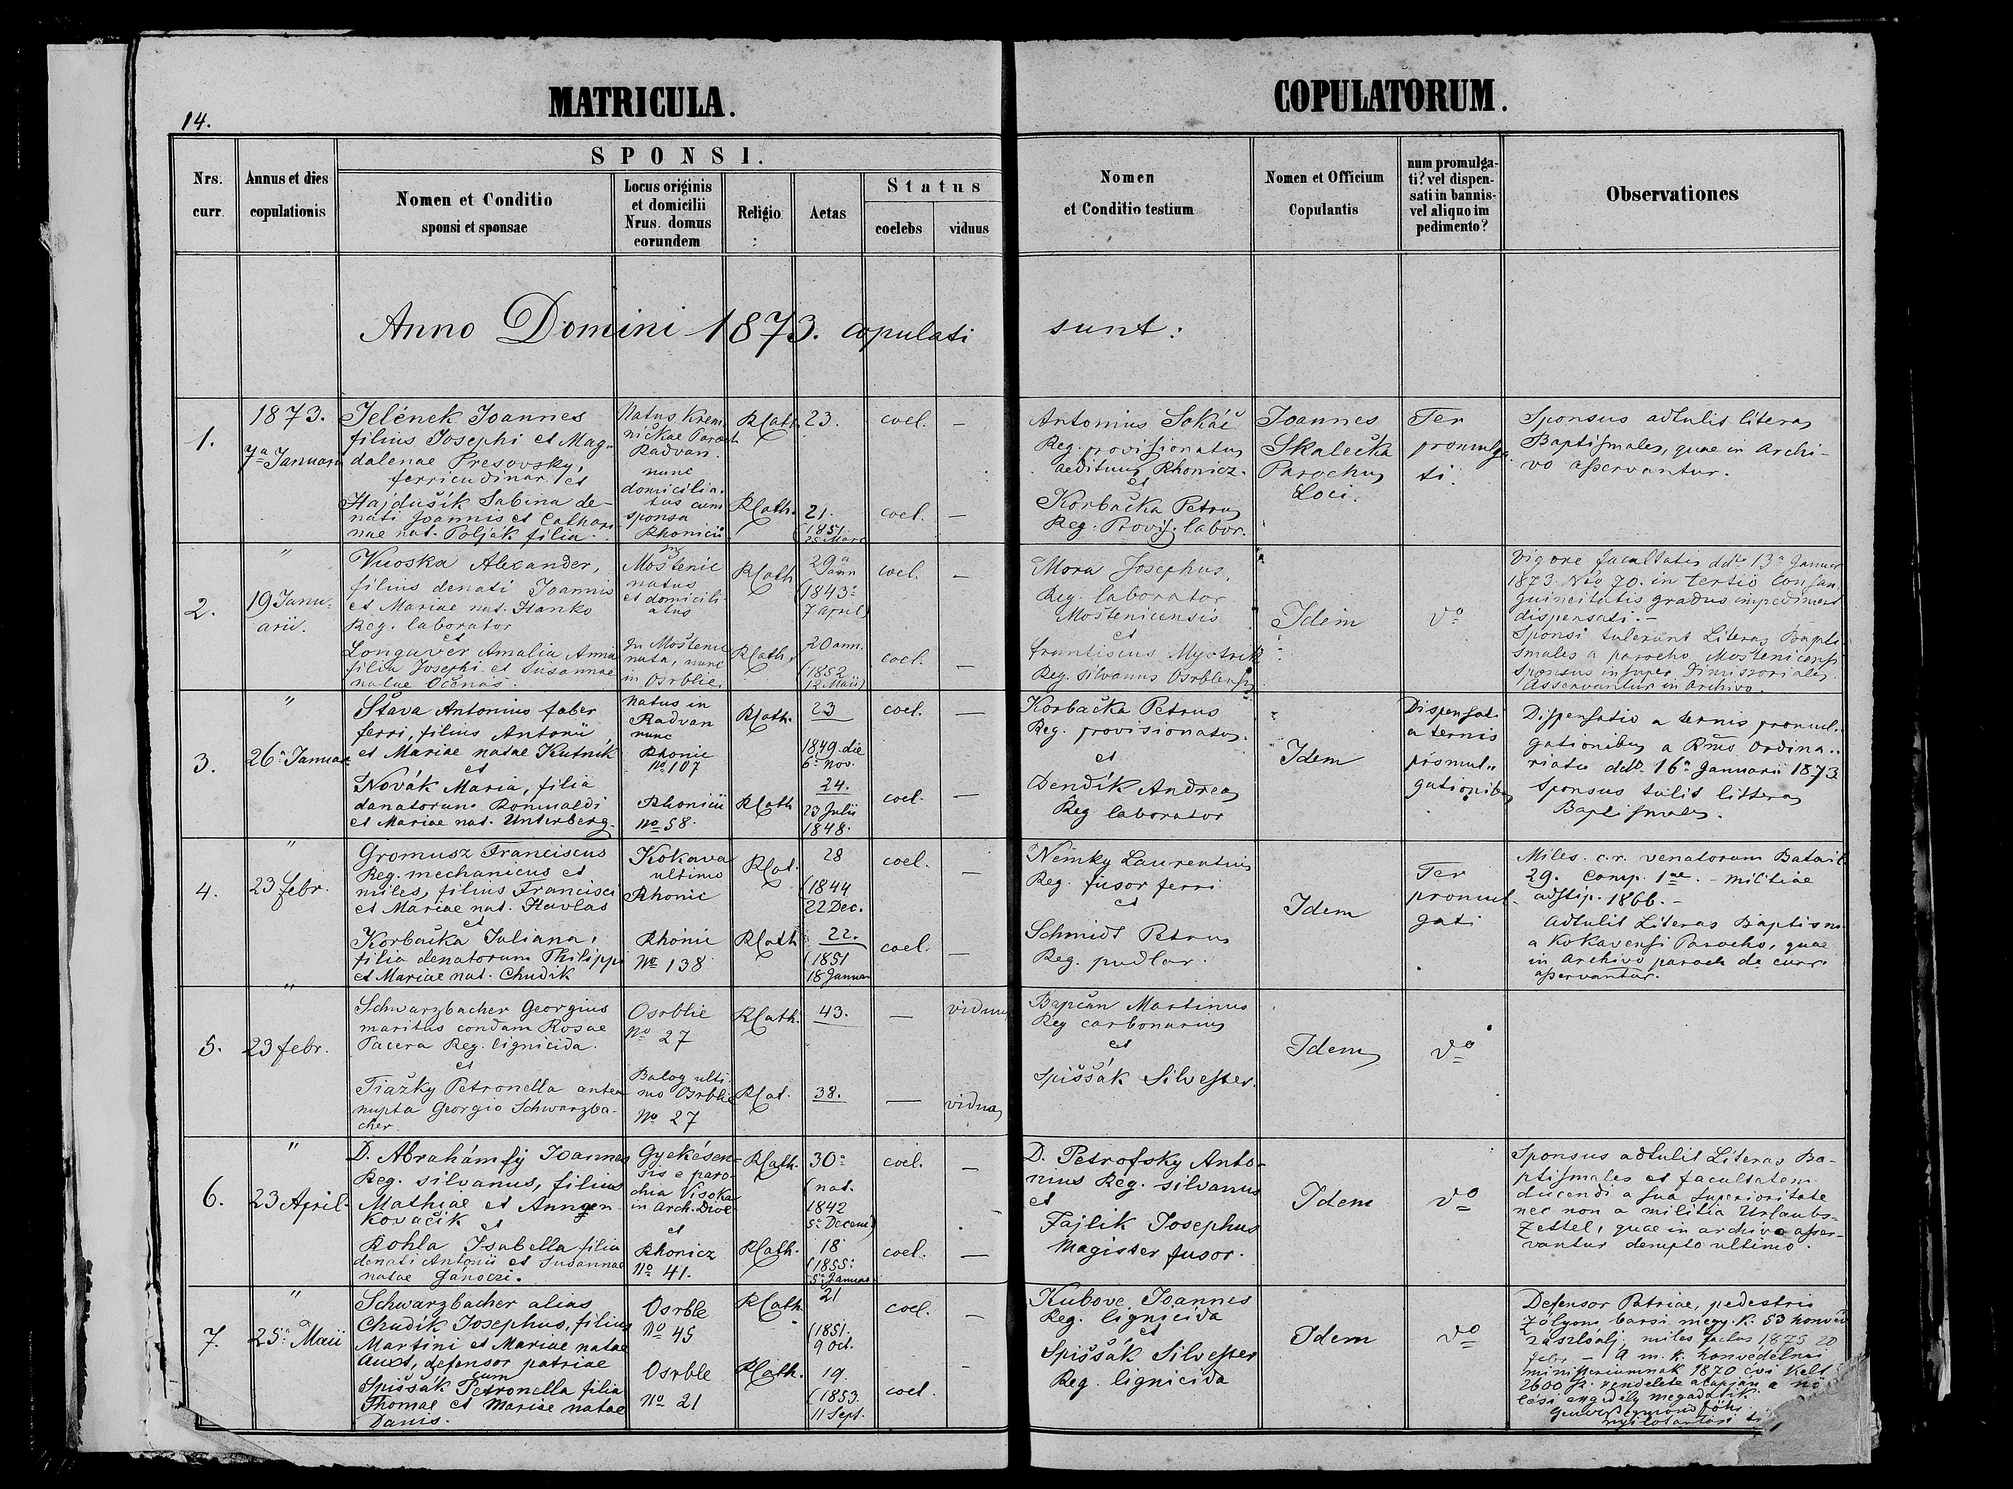 MATRICULA.
COPULATORUM.
14.
Nrs. curr.
Annus et dies copulationis
SPONSI.
Nomen et Conditio
sponsi et sponsae
Locus originis
et domicilii
Nrus. domus
eorundem
Religio
Aetas
Status
coelebs
viduus
Nomen
et Conditio testium
Nomen et Officium
Copulantis
num promulga-
ti? vel dispen-
sati in bannis-
vel aliquo im
pedimento?
Observationes
Anno Domini 1873. copulati sunt:
1.
1873.
7a Januarii
Jelének Joannes
filius Josephi et Mag-
dalenae Presovsky,
ferricudinar. et
Hajdušik Sabina de-
nati Joannis et Cathari-
nae nat. Polják filia.
Natus Krem
ničkae Paroch
Radvan.
nunc
domicilia-
tus cum
sponsa
Rhonicii
RCath.
23.
coel.
—
RCath.
21.
(1851.
25 Mart
coel.
—
Antonius Sokáč
Reg. provisionatus
aedituus Rhonicz.
et
Korbačka Petrus
Reg. Provis. labor.
Joannes
Skalečka
Parochus
Loci.
Ter
promulga
ti.
Sponsus adtulit literas
Baptismales, quae in Archi-
vo asservantur.
2.
"
19 Janu-
arii.
Vuoska Alexander,
filius denati Joannis
et Mariae nat. Hanko
Reg. laborator
et
Longaver Amalia Anna
filia Josephi et Susannae
natae Očenáš.
Moštenic
natus
et domicili-
atus
In Moštenic
nata, nunc
in Osrblie.
RCath
29
(1843
7 april)
coel.
—
RCath.
20 ann.
(1852
12 Maii)
coel.
—
Mora Josephus,
Reg. laborator
Moštenicensis
et
Franciscus Myotrik
Reg. silvanus Osrblensis
Idem
do
Vigore facultatis ddto 13a Januar
1873 Nro 70. in tertio Consan
guineitatis gradus impediment
dispensati.—
Sponsi tulerunt Literas Bapti-
smales a parocho Moštenicensi
Sponsus insuper Dimissoriales.
Asservantur in Archivo.
3.
"
26a Januar
Štava Antonius faber
ferri, filius Antonii
et Mariae natae Kutnik
et
Novák Maria, filia
denatorum Romualdi
et Mariae nat. Unterberg.
Natus in
Radvan
nunc
Rhonic
No 107
Rhonicii
No 58.
RCath.
23
1849. die
6a Nov.
coel.
—
RCath
24.
23 Julii
1848.
coel.
—
Korbačka Petrus
Reg. provisionatus.
et
Dendik Andreas
Reg laborator
Idem
Dispensati
a ternis
promul-
gationibus
Dispensatio a ternis promul-
gationibus a Rms Ordina-
riatu ddto 16a Januarii 1873
Sponsus tulit litteras
Baptismales.
4.
"
23 febr.
Gromusz Franciscus
Reg. mechanicus et
miles, filius Francisci
et Mariae nat. Havlas
et
Korbačka Juliana,
filia denatorum Philippi
et Mariae nat. Chudik
Kokava
ultimo
Rhonic
Rhonic
No 138
RCat.
28
(1844
22 Dec.
coel.
—
RCath
22.
(1851
18 Januar
coel.
—
Nemky Laurentius
Reg. fusor ferri
et
Schmidt Petrus
Reg. pudlar.
Idem
Ter
promul-
gati
Miles. c.r. venatorum Batail
29. Comp. 1ae. — militiae
adstip. 1866.—
Adtulit Literas Baptism
a Kokavensi Parocho, quae
in Archivo paroch de curr.
asservantur.
5.
"
23 febr.
Schwarzbacher Georgius
maritus condam Rosae
Pacera Reg. lignicida.
et
Tiažky Petronella antea
nupta Georgio Schwarzba-
cher.
Osrblie
No 27
Balog ulti-
mo Osrblie
No 27
RCath.
43.
—
viduus
RCat.
38.
—
vidua
Bapčan Martinus
Reg carbonarius
et
Spiššák Silvester
Idem
do
6.
"
23 April.
D. Abrahámfy Joannes
Reg. silvanus, filius
Mathiae et Annae n.
Kovačik
et
Rohla Isabella filia
denati Antonii et Susannae
natae Gánoczi.
Gyekésen-
sis e paro-
chia Visoka
in Arch. Dioe
et
Rhonicz
No 41.
RCath.
30
(nat.
1842
5a Decemb)
coel.
—
RCath.
18
(1855:
5a Januar
coel.
—
D. Petrofsky Anto-
nius Reg. silvanus
et
Fajlik Josephus
Magister fusor.
Idem
do
Sponsus adtulit Literas Ba-
ptismales et facultatem
ducendi a sua superioritate
nec non a militia Urlaubs-
Zettel, quae in archivo asser-
vantur dempto ultimo.
7.
"
25a Maii
Schwarzbacher alias
Chudik Josephus, filius
Martini et Mariae natae
Auxt, defensor patriae
cum
Spiššák Petronella filia
Thomae et Mariae natae
Danis.
Osrble
No 45
Osrble
No 21
RCath.
21
(1851.
9 Oct.
coel.
—
RCath.
19.
(1853.
11 Sept.
coel.
—
Kubove Joannes
Reg. lignicida
et
Spiššák Silvester
Reg. lignicida
Idem
do
Defensor Patriae, pedestris
Zólyom barsi megy. k. 53 honvéd
zászlóalj. miles factus 1873 20
febr. — A m. k. honvédelmi
ministeriumnak 1870 évi kelt
2600 sz. rendelete alapján a nö
lési engedély megadatik.
nyilvántartási